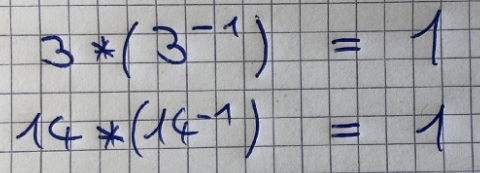 3 * (3⁻¹) = 1
14 * (14⁻¹) = 1